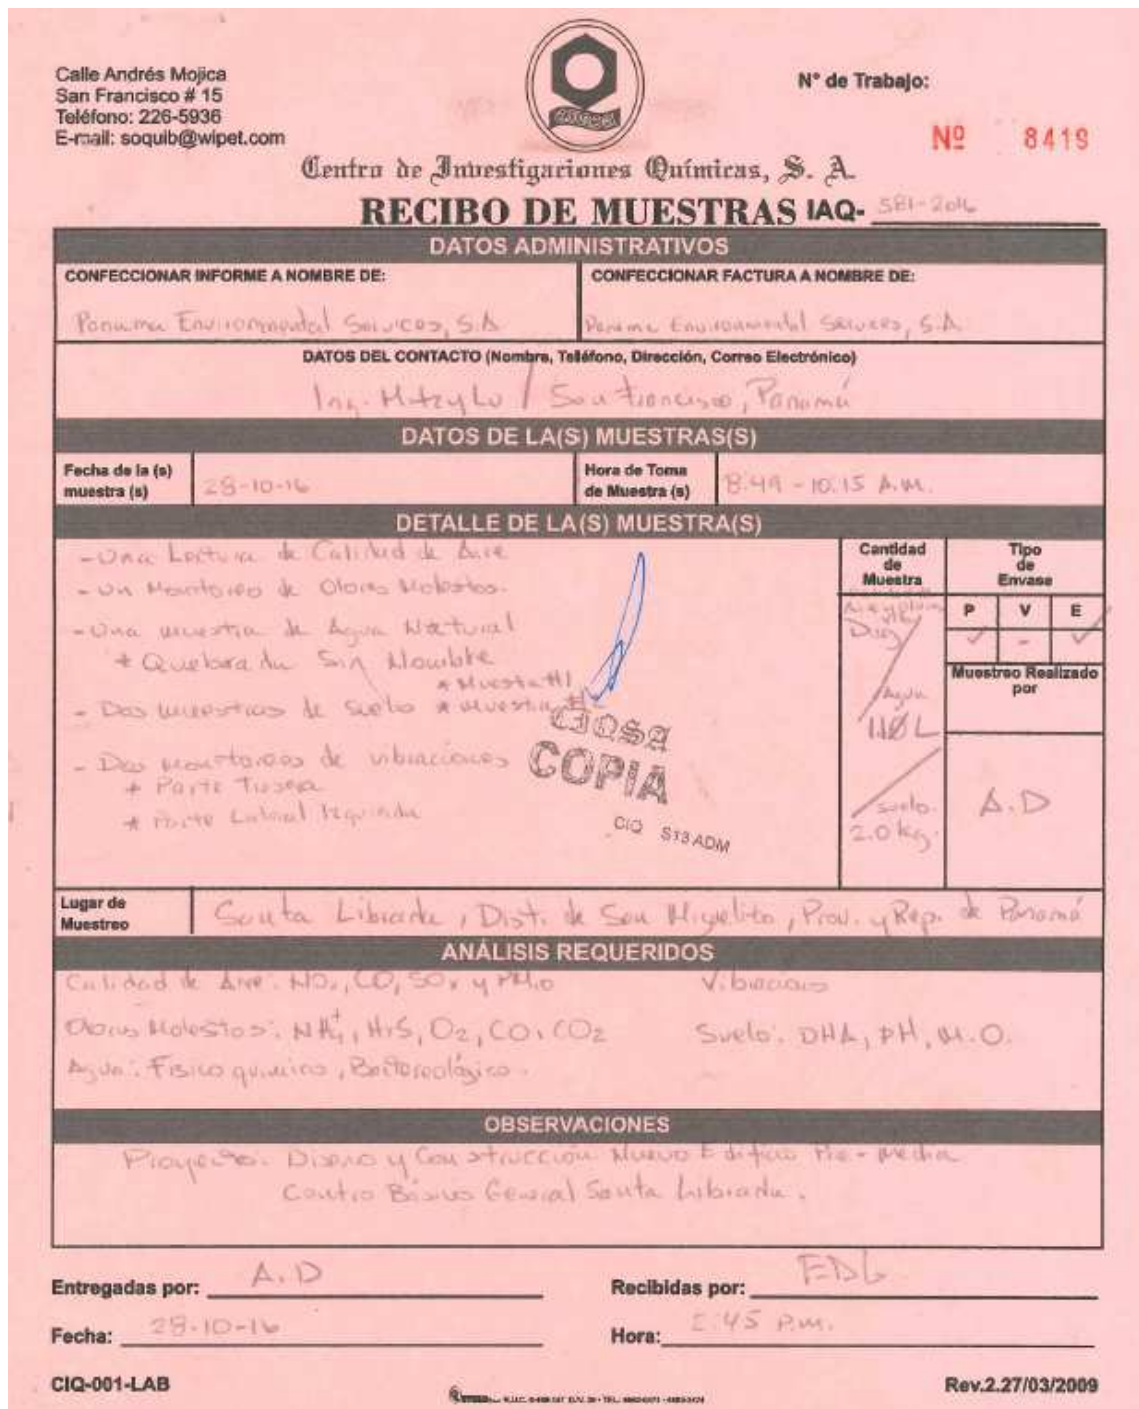 Calle Andrés Mojica
San Francisco # 15
Teléfono: 226-5936
E-mail: soquib@wipet.com
N° de Trabajo:
Nº 8419
Centro de Investigaciones Químicas, S. A.
RECIBO DE MUESTRAS IAQ- 581-2016
DATOS ADMINISTRATIVOS
CONFECCIONAR INFORME A NOMBRE DE:
CONFECCIONAR FACTURA A NOMBRE DE:
Panama Environmental Services, S.A.
Panama Environmental Services, S.A.
DATOS DEL CONTACTO (Nombre, Teléfono, Dirección, Correo Electrónico)
Ing. Mitzy Lu / San Francisco, Panamá
DATOS DE LA(S) MUESTRAS(S)
Fecha de la (s) muestra (s)
28-10-16
Hora de Toma de Muestra (s)
8:49 - 10:15 A.M.
DETALLE DE LA(S) MUESTRA(S)
- Una Lectura de Calidad de Aire
- Un Monitoreo de Olores Molestos.
- Una muestra de Agua Natural
* Quebrada Sin Nombre
* Muestra #1
- Dos muestras de Suelo * Muestra
- Dos monitoreos de vibraciones
* Parte Trasera
* Parte Lateral Izquierda
CIQSA
COPIA
CIQ S13 ADM
Cantidad de Muestra
Agua
L
Suelo.
2.0 kg.
Tipo de Envase
P V E
✓ - ✓
Muestreo Realizado por
A.D
Lugar de Muestreo
Santa Librada, Dist. de San Miguelito, Prov. y Rep. de Panamá
ANÁLISIS REQUERIDOS
Calidad de Aire: NOx, CO, SOx y PM10
Vibraciones
Olores Molestos: NH4+, H2S, O2, CO, CO2
Suelo: DHA, PH, M.O.
Agua: Fisico quimico, Bacteriológico.
OBSERVACIONES
Proyecto: Diseño y Construcción Nuevo Edificio Pre-Media
Centro Básico General Santa Librada.
Entregadas por: A.D
Recibidas por:
Fecha: 28-10-16
Hora: 2:45 P.M.
CIQ-001-LAB
Rev.2.27/03/2009